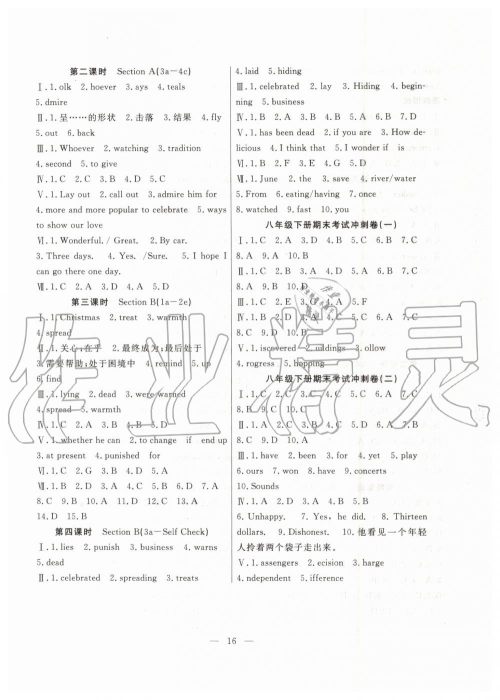 第二课时 Section A(3a—4c)
Ⅰ.1.olk 2.hoever 3.ays 4.teals
5.dmire
Ⅱ.1.呈……的形状 2.击落 3.结果 4.fly
5.out 6.back
Ⅲ.1.Whoever 2.watching 3.tradition
4.second 5.to give
Ⅳ.1.C 2.C 3.B 4.D 5.A
Ⅴ.1.Lay out 2.call out 3.admire him for
4.more and more popular to celebrate 5.ways
to show our love
Ⅵ.1.Wonderful./Great. 2.By car.
3.Three days. 4.Yes./Sure. 5.I hope I
can go there one day.
第三课时 Section B(1a—2e)
Ⅰ.1.Christmas 2.treat 3.warmth
4.spread
Ⅱ.1.关心;在乎 2.最终成为;最后处于
3.需要帮助;处于困境中 4.remind 5.up
6.find
Ⅲ.1.lying 2.dead 3.were warned
4.spread 5.warmth
Ⅳ.1.C 2.A 3.B 4.B 5.D
Ⅴ.1.what to do 2.to change if end up
3.at present 4.punished for
Ⅵ.1.C 2.G 3.B 4.D 5.A
Ⅶ.1.C 2.D 3.A 4.D 5.D 6.B 7.A
8.C 9.B 10.C 11.A 12.C 13.A
14.D 15.B
第四课时 Section B(3a—Self Check)
Ⅰ.1.lies 2.punish 3.business 4.warns
5.dead
Ⅱ.1.celebrated 2.spreading 3.treats
4.laid 5.hiding
Ⅲ.1.celebrated 2.lay 3.Hiding 4.begin-
ning 5.business
Ⅳ.1.B 2.A 3.C 4.B 5.C 6.B 7.D
Ⅴ.1.has been dead 2.if you are 3.How de-
licious 4.I think that 5.I wonder if is
Ⅵ.1.June 2.the 3.save 4.river/water
5.From 6.eating/having 7.once
8.watched 9.fast 10.by
八年级下册期末考试冲刺卷(一)
Ⅰ.1.C 2.A 3.D 4.A 5.B 6.B 7.C
8.A 9.A 10.B
Ⅱ.1.C 2.B 3.C 4.A 5.C 6.D 7.C
8.A 9.D 10.A
Ⅲ.1.D 2.B 3.C 4.A 5.F
Ⅳ.1.D 2.A 3.A 4.C 5.B 6.A 7.C
8.C 9.D 10.B
Ⅴ.1.iscovered 2.uildings 3.ollow
4.rogress 5.hopping
八年级下册期末考试冲刺卷(二)
8.C 9.C 10.D
Ⅲ.1.have 2.been 3.for 4.yet 5.play
6.ours 7.won 8.have 9.concerts
10.Sounds
Ⅳ.1.A 2.C 3.B 4.C 5.A
6.Unhappy. 7.Yes, he did. 8.Thirteen
dollars. 9.Dishonest. 10.他看见一个年轻
人拎着两个袋子走出来。
Ⅴ.1.assengers 2.ecision 3.harge
4.ndependent 5.ifference
— 16 —
作业精灵